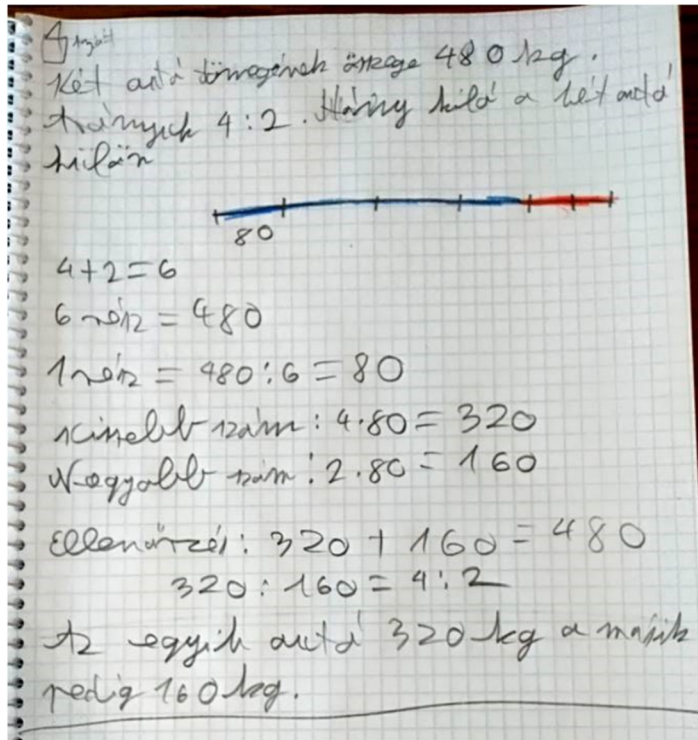 4
Két autó tömegének összege 480 kg.
Arányuk 4:2. Hány kiló a két autó
külön
80
4+2=6
6 rész = 480
1 rész = 480:6=80
Kissebb szám: 4·80=320
Nagyobb szám: 2·80=160
Ellenőrzés: 320+160=480
320:160=4:2
Az egyik autó 320 kg a másik
pedig 160 kg.